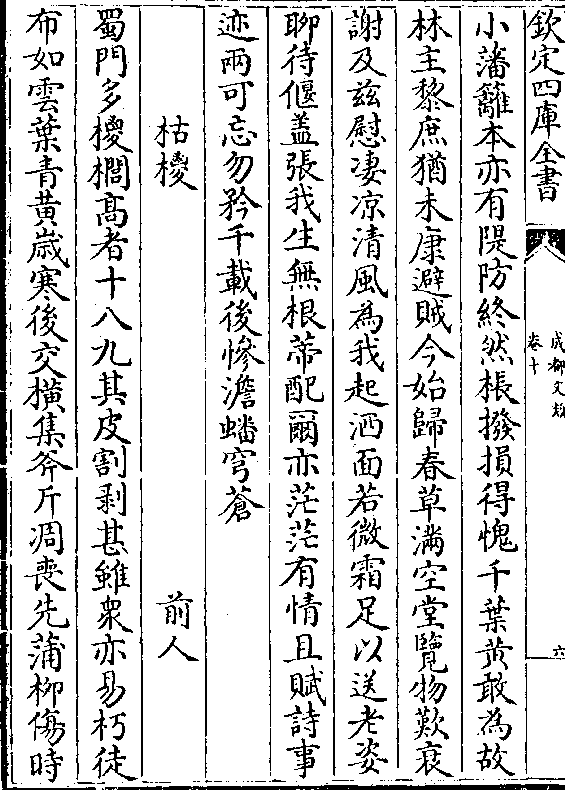 欽定四庫全書
成都文類
卷十
六
小藩籬本亦有隄防終然棖撥損得愧千葉黄敢為故
林主黎庶猶未康避賊今始歸春草滿空堂覽物歎衰
謝及兹慰凄凉清風為我起洒面若微霜足以送老姿
聊待偃盖張我生無根蔕配爾亦茫茫有情且賦詩事
迹兩可忘勿矜千載後慘澹蟠穹蒼
枯椶　前人
蜀門多椶櫚髙者十八九其皮割剥甚雖衆亦易朽徒
布如雲葉青黄歳寒後交横集斧斤凋喪先蒲柳傷時